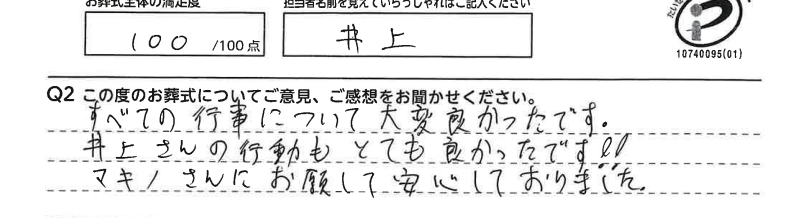 お葬式全体の満足度
担当者名前を覚えていらっしゃればご記入ください
100 /100点
井上
10740095(01)
Q2 この度のお葬式についてご意見、ご感想をお聞かせください。
すべての行事について大変良かったです。
井上さんの行動もとても良かったです!!
マキノさんにお願して安心しておりました。